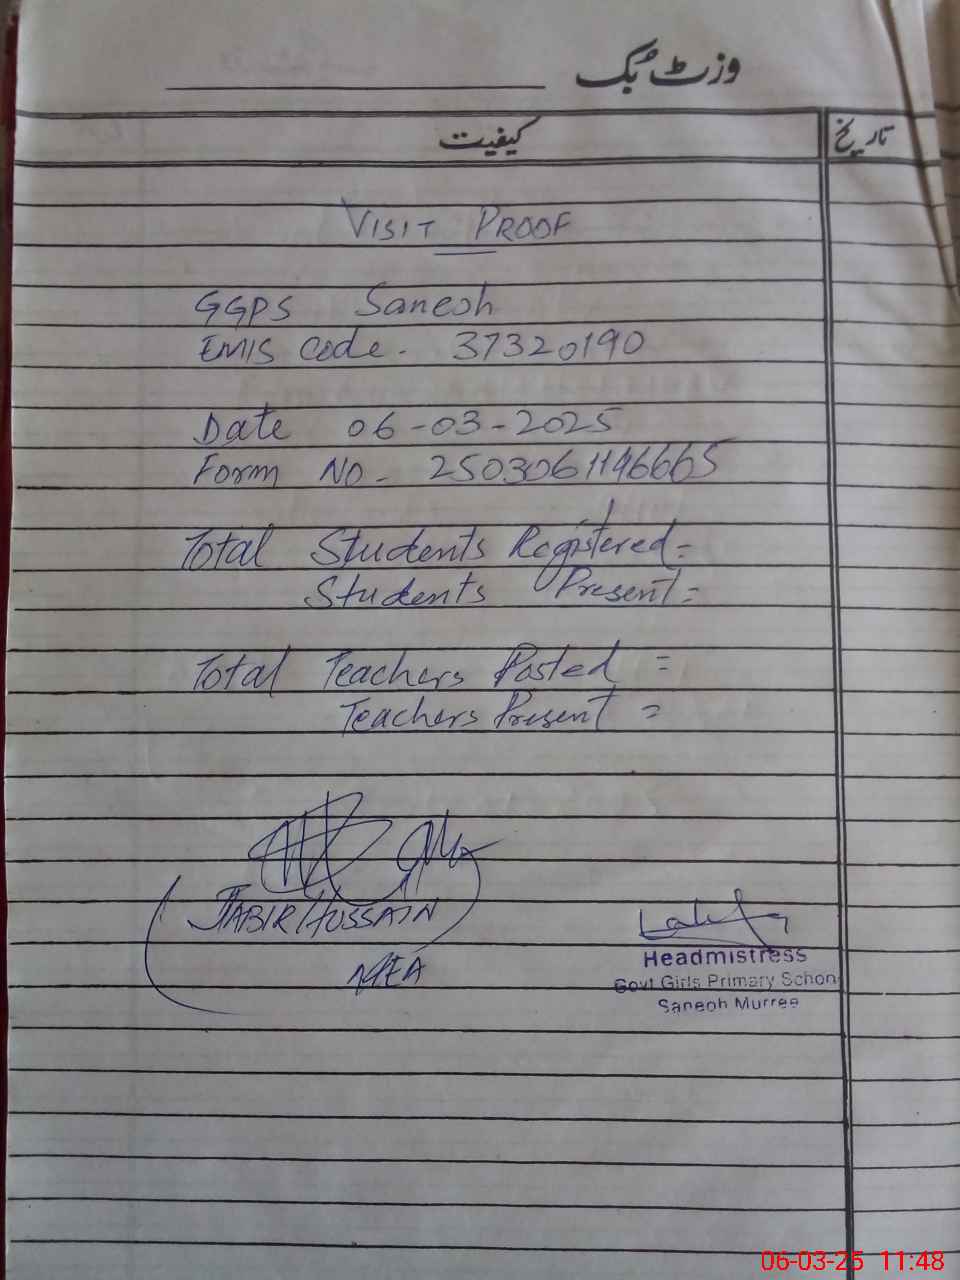 وزٹ بُک
کیفیت
تاریخ
VISIT PROOF
GGPS Saneoh
EMIS Code. 37320190
Date 06-03-2025
Form NO. 2503061146665
Total Students Registered=
Students Present=
Total Teachers Posted =
Teachers Present =
JABIR HUSSAIN
MEA
Headmistress
Govt Girls Primary School
Saneoh Murree
06-03-25 11:48